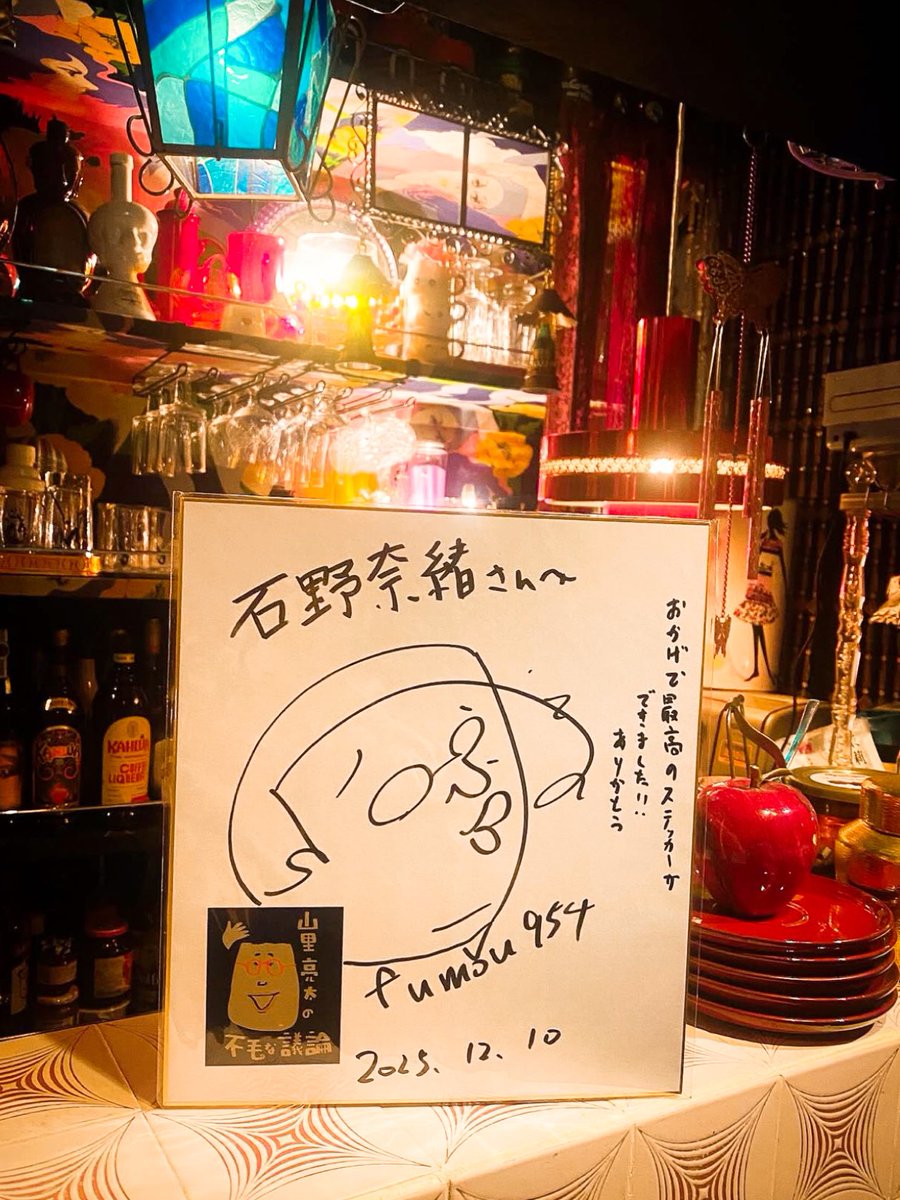 石野奈緒さんへ
おかげで最高のステッカーが
できました!!
ありがとう
fumou954
2025.12.10
山里亮太の
不毛な議論
KAHLÚA
COFFEE
LIQUEUR